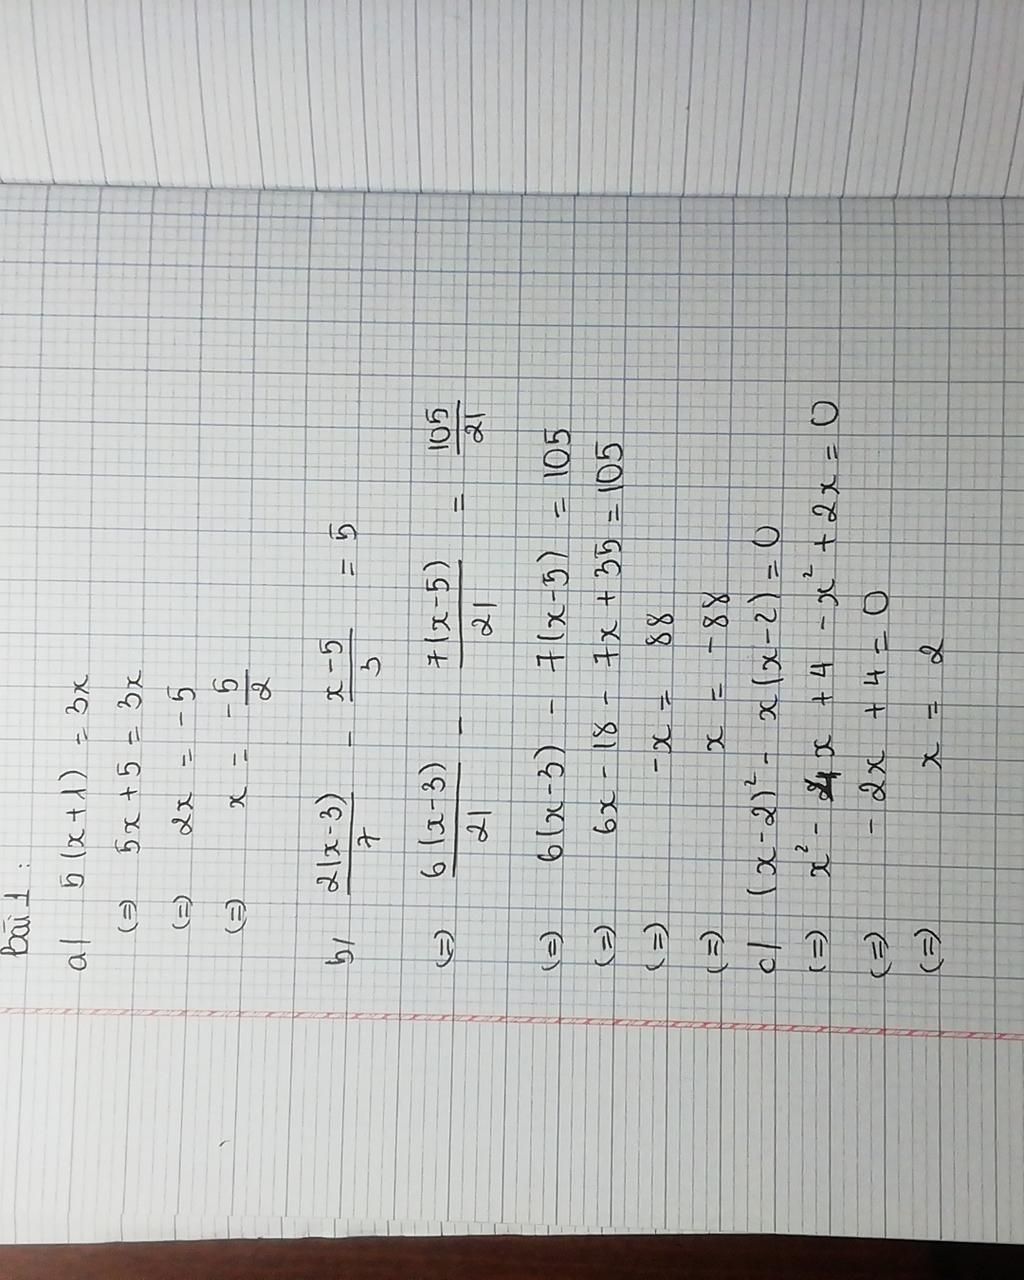 Bài 1 :
a) 5(x+1) = 3x
(=) 5x + 5 = 3x
(=) 2x = -5
(=) x = -5/2
b) 2(x-3)/7 - x-5/3 = 5
(=) 6(x-3)/21 - 7(x-5)/21 = 105/21
(=) 6(x-3) - 7(x-5) = 105
(=) 6x - 18 - 7x + 35 = 105
(=) -x = 88
(=) x = -88
c) (x-2)² - x(x-2) = 0
(=) x² - 4x + 4 - x² + 2x = 0
(=) -2x + 4 = 0
(=) x = 2